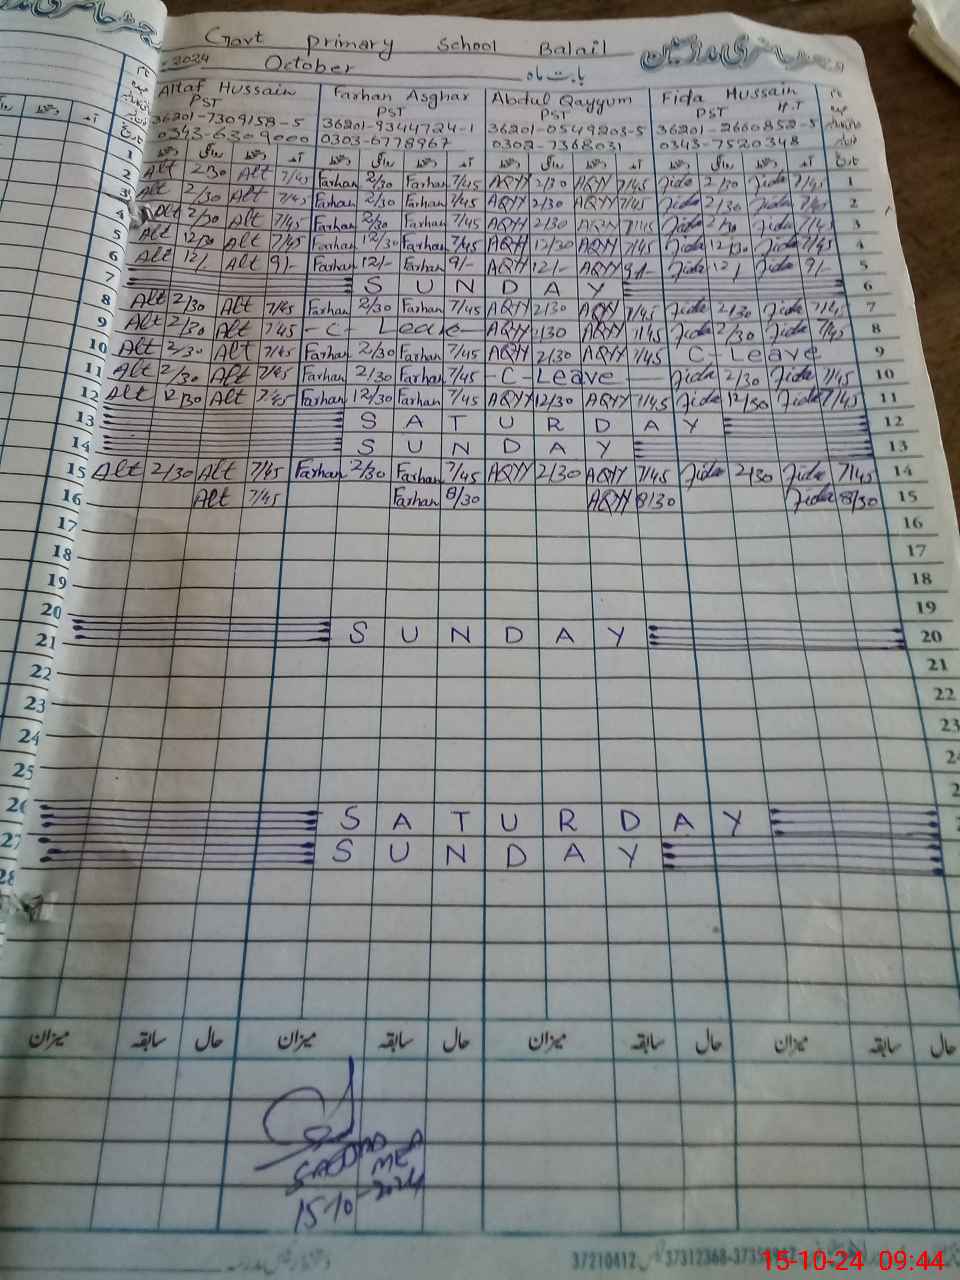 Govt Primary School Balail
2024 October بابت ماہ
Altaf Hussain Farhan Asghar Abdul Qayyum Fida Hussain
PST PST PST PST H.T
36201-7309158-5 36201-9344724-1 36201-0549203-5 36201-2660852-5
0343-6309000 0303-6778967 0302-7368031 0343-7520348
1 آمد آمد آمد آمد
2 Alt 2/30 Alt 7/45 Farhan 2/30 Farhan 7/45 AQYY 2/30 AQYY 7/45 Fida 2/30 Fida 7/45 1
3 Alt 2/30 Alt 7/45 Farhan 2/30 Farhan 7/45 AQYY 2/30 AQYY 7/45 Fida 2/30 Fida 7/45 2
4 Alt 2/30 Alt 7/45 Farhan 2/30 Farhan 7/45 AQYY 2/30 AQYY 7/45 Fida 2/30 Fida 7/45 3
5 Alt 12/30 Alt 7/45 Farhan 12/30 Farhan 7/45 AQYY 12/30 AQYY 7/45 Fida 12/30 Fida 7/45 4
6 Alt 12/- Alt 9/- Farhan 12/- Farhan 9/- AQYY 12/- AQYY 9/- Fida 12/ Fida 9/- 5
7 SUNDAY 6
8 Alt 2/30 Alt 7/45 Farhan 2/30 Farhan 7/45 AQYY 2/30 AQYY 7/45 Fida 2/30 Fida 7/45 7
9 Alt 2/30 Alt 7/45 -C- Leave- AQYY 2/30 AQYY 7/45 Fida 2/30 Fida 7/45 8
10 Alt 2/30 Alt 7/45 Farhan 2/30 Farhan 7/45 AQYY 2/30 AQYY 7/45 C-Leave 9
11 Alt 2/30 Alt 7/45 Farhan 2/30 Farhan 7/45 -C-Leave- Fida 2/30 Fida 7/45 10
12 Alt 12/30 Alt 7/45 Farhan 12/30 Farhan 7/45 AQYY 12/30 AQYY 7/45 Fida 12/30 Fida 7/45 11
13 SATURDAY 12
14 SUNDAY 13
15 Alt 2/30 Alt 7/45 Farhan 2/30 Farhan 7/45 AQYY 2/30 AQYY 7/45 Fida 2/30 Fida 7/45 14
16 Alt 7/45 Farhan 8/30 AQYY 8/30 Fida 8/30 15
17 16
18 17
19 18
20 19
21 SUNDAY 20
22 21
23 22
24 23
25
26 SATURDAY
27 SUNDAY
28
میزان سابقہ حال میزان سابقہ حال میزان سابقہ حال میزان سابقہ حال
MEA
15-10-2024
37210412 37312368
15-10-24 09:44